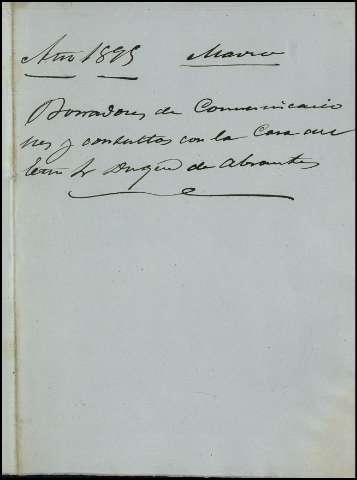 Año 1895 Marzo
Borradores de Comunicacio
nes y consultas con la Casa del
Sr Duque de Abrantes